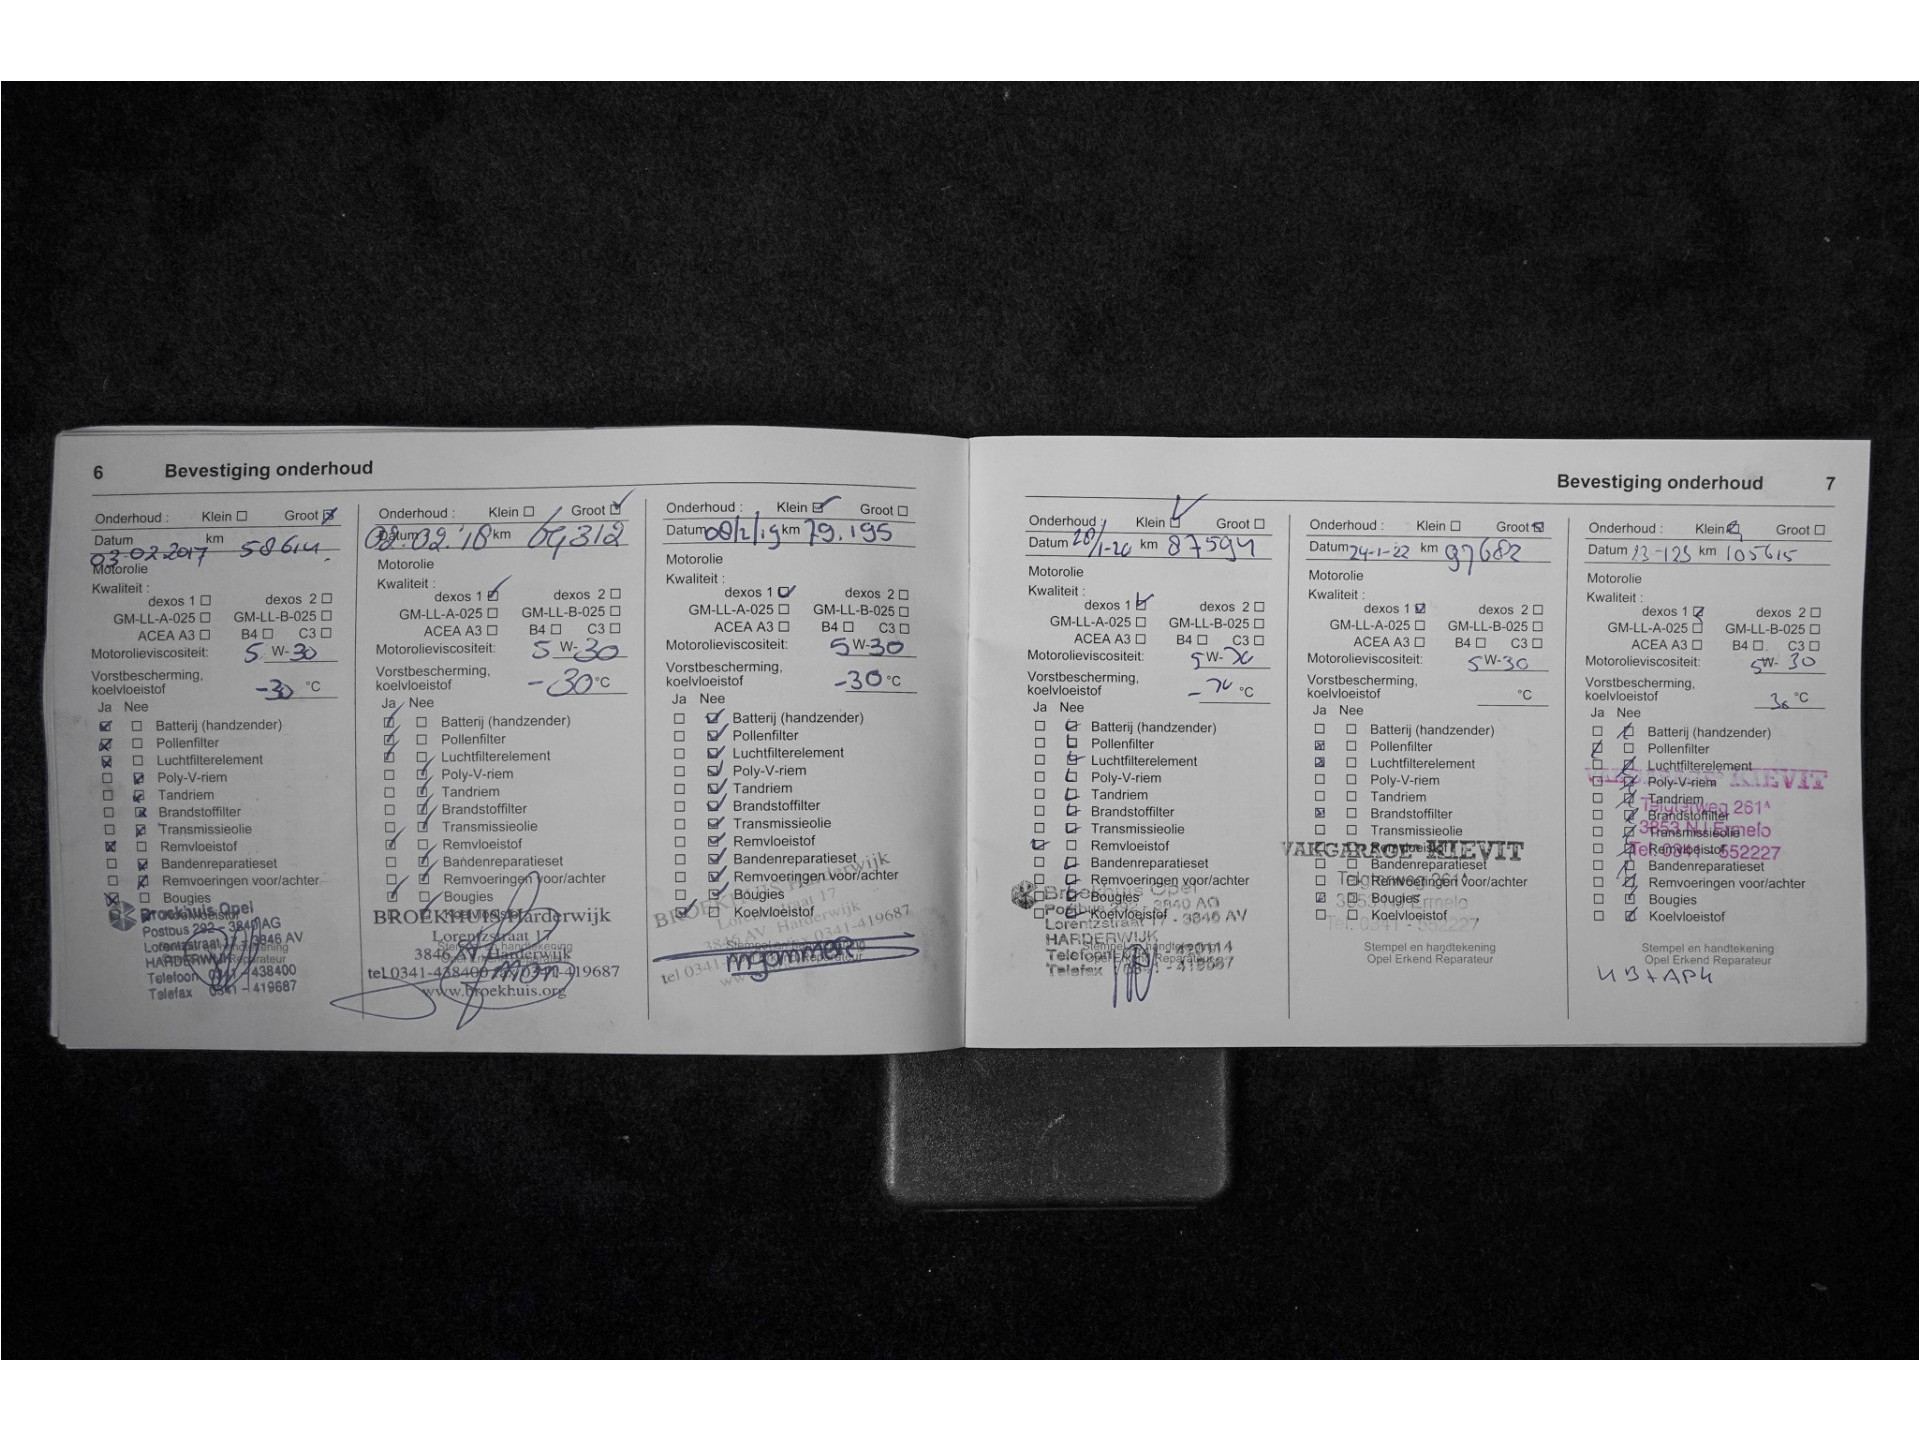 6 Bevestiging onderhoud
Onderhoud : Klein Groot
Datum 03.02.2017 km 58614
Motorolie
Kwaliteit :
dexos 1 dexos 2
GM-LL-A-025 GM-LL-B-025
ACEA A3 B4 C3
Motorolieviscositeit: 5 W-30
Vorstbescherming,
koelvloeistof -30 °C
Ja Nee
Batterij (handzender)
Pollenfilter
Luchtfilterelement
Poly-V-riem
Tandriem
Brandstoffilter
Transmissieolie
Remvloeistof
Bandenreparatieset
Remvoeringen voor/achter
Bougies
Koelvloeistof
Broekhuis Opel
Postbus 292 - 3840 AG
Lorentzstraat 17 - 3846 AV
HARDERWIJK
Telefoon 0341 - 438400
Telefax 0341 - 419687
Onderhoud : Klein Groot
Datum 02.02.'18 km 69312
Motorolie
Kwaliteit :
dexos 1 dexos 2
GM-LL-A-025 GM-LL-B-025
ACEA A3 B4 C3
Motorolieviscositeit: 5 W-30
Vorstbescherming,
koelvloeistof -30 °C
Ja Nee
Batterij (handzender)
Pollenfilter
Luchtfilterelement
Poly-V-riem
Tandriem
Brandstoffilter
Transmissieolie
Remvloeistof
Bandenreparatieset
Remvoeringen voor/achter
Bougies
Koelvloeistof
BROEKHUIS Harderwijk
Lorentzstraat 17
3846 AV Harderwijk
tel 0341-438400 fax 0341-419687
www.broekhuis.org
Onderhoud : Klein Groot
Datum 08/2/19 km 79.195
Motorolie
Kwaliteit :
dexos 1 dexos 2
GM-LL-A-025 GM-LL-B-025
ACEA A3 B4 C3
Motorolieviscositeit: 5 W-30
Vorstbescherming,
koelvloeistof -30 °C
Ja Nee
Batterij (handzender)
Pollenfilter
Luchtfilterelement
Poly-V-riem
Tandriem
Brandstoffilter
Transmissieolie
Remvloeistof
Bandenreparatieset
Remvoeringen voor/achter
Bougies
Koelvloeistof
BROEKHUIS Harderwijk
Lorentzstraat 17
3846 AV Harderwijk
tel 0341 0341-419687
Opel Erkend Reparateur
Bevestiging onderhoud 7
Onderhoud : Klein Groot
Datum 28/1-20 km 87594
Motorolie
Kwaliteit :
dexos 1 dexos 2
GM-LL-A-025 GM-LL-B-025
ACEA A3 B4 C3
Motorolieviscositeit: 5 W-30
Vorstbescherming,
koelvloeistof °C
Ja Nee
Batterij (handzender)
Pollenfilter
Luchtfilterelement
Poly-V-riem
Tandriem
Brandstoffilter
Transmissieolie
Remvloeistof
Bandenreparatieset
Remvoeringen voor/achter
Bougies
Koelvloeistof
Broekhuis Opel
Postbus 292 - 3840 AG
Lorentzstraat 17 - 3846 AV
HARDERWIJK
Telefoon
Telefax 0341 - 419687
Onderhoud : Klein Groot
Datum 24-1-22 km 97682
Motorolie
Kwaliteit :
dexos 1 dexos 2
GM-LL-A-025 GM-LL-B-025
ACEA A3 B4 C3
Motorolieviscositeit: 5 W-30
Vorstbescherming,
koelvloeistof °C
Ja Nee
Batterij (handzender)
Pollenfilter
Luchtfilterelement
Poly-V-riem
Tandriem
Brandstoffilter
Transmissieolie
Remvloeistof
Bandenreparatieset
Remvoeringen voor/achter
Bougies
Koelvloeistof
VAKGARAGE KIEVIT
Telgterweg 261A
3853 NJ Ermelo
Tel. 0341 - 552227
Stempel en handtekening
Opel Erkend Reparateur
Onderhoud : Klein Groot
Datum 23-123 km 105615
Motorolie
Kwaliteit :
dexos 1 dexos 2
GM-LL-A-025 GM-LL-B-025
ACEA A3 B4 C3
Motorolieviscositeit: 5 W-30
Vorstbescherming,
koelvloeistof 30 °C
Ja Nee
Batterij (handzender)
Pollenfilter
Luchtfilterelement
Poly-V-riem
Tandriem
Brandstoffilter
Transmissieolie
Remvloeistof
Bandenreparatieset
Remvoeringen voor/achter
Bougies
Koelvloeistof
VAKGARAGE KIEVIT
Telgterweg 261A
3853 NJ Ermelo
Tel. 0341 - 552227
Stempel en handtekening
Opel Erkend Reparateur